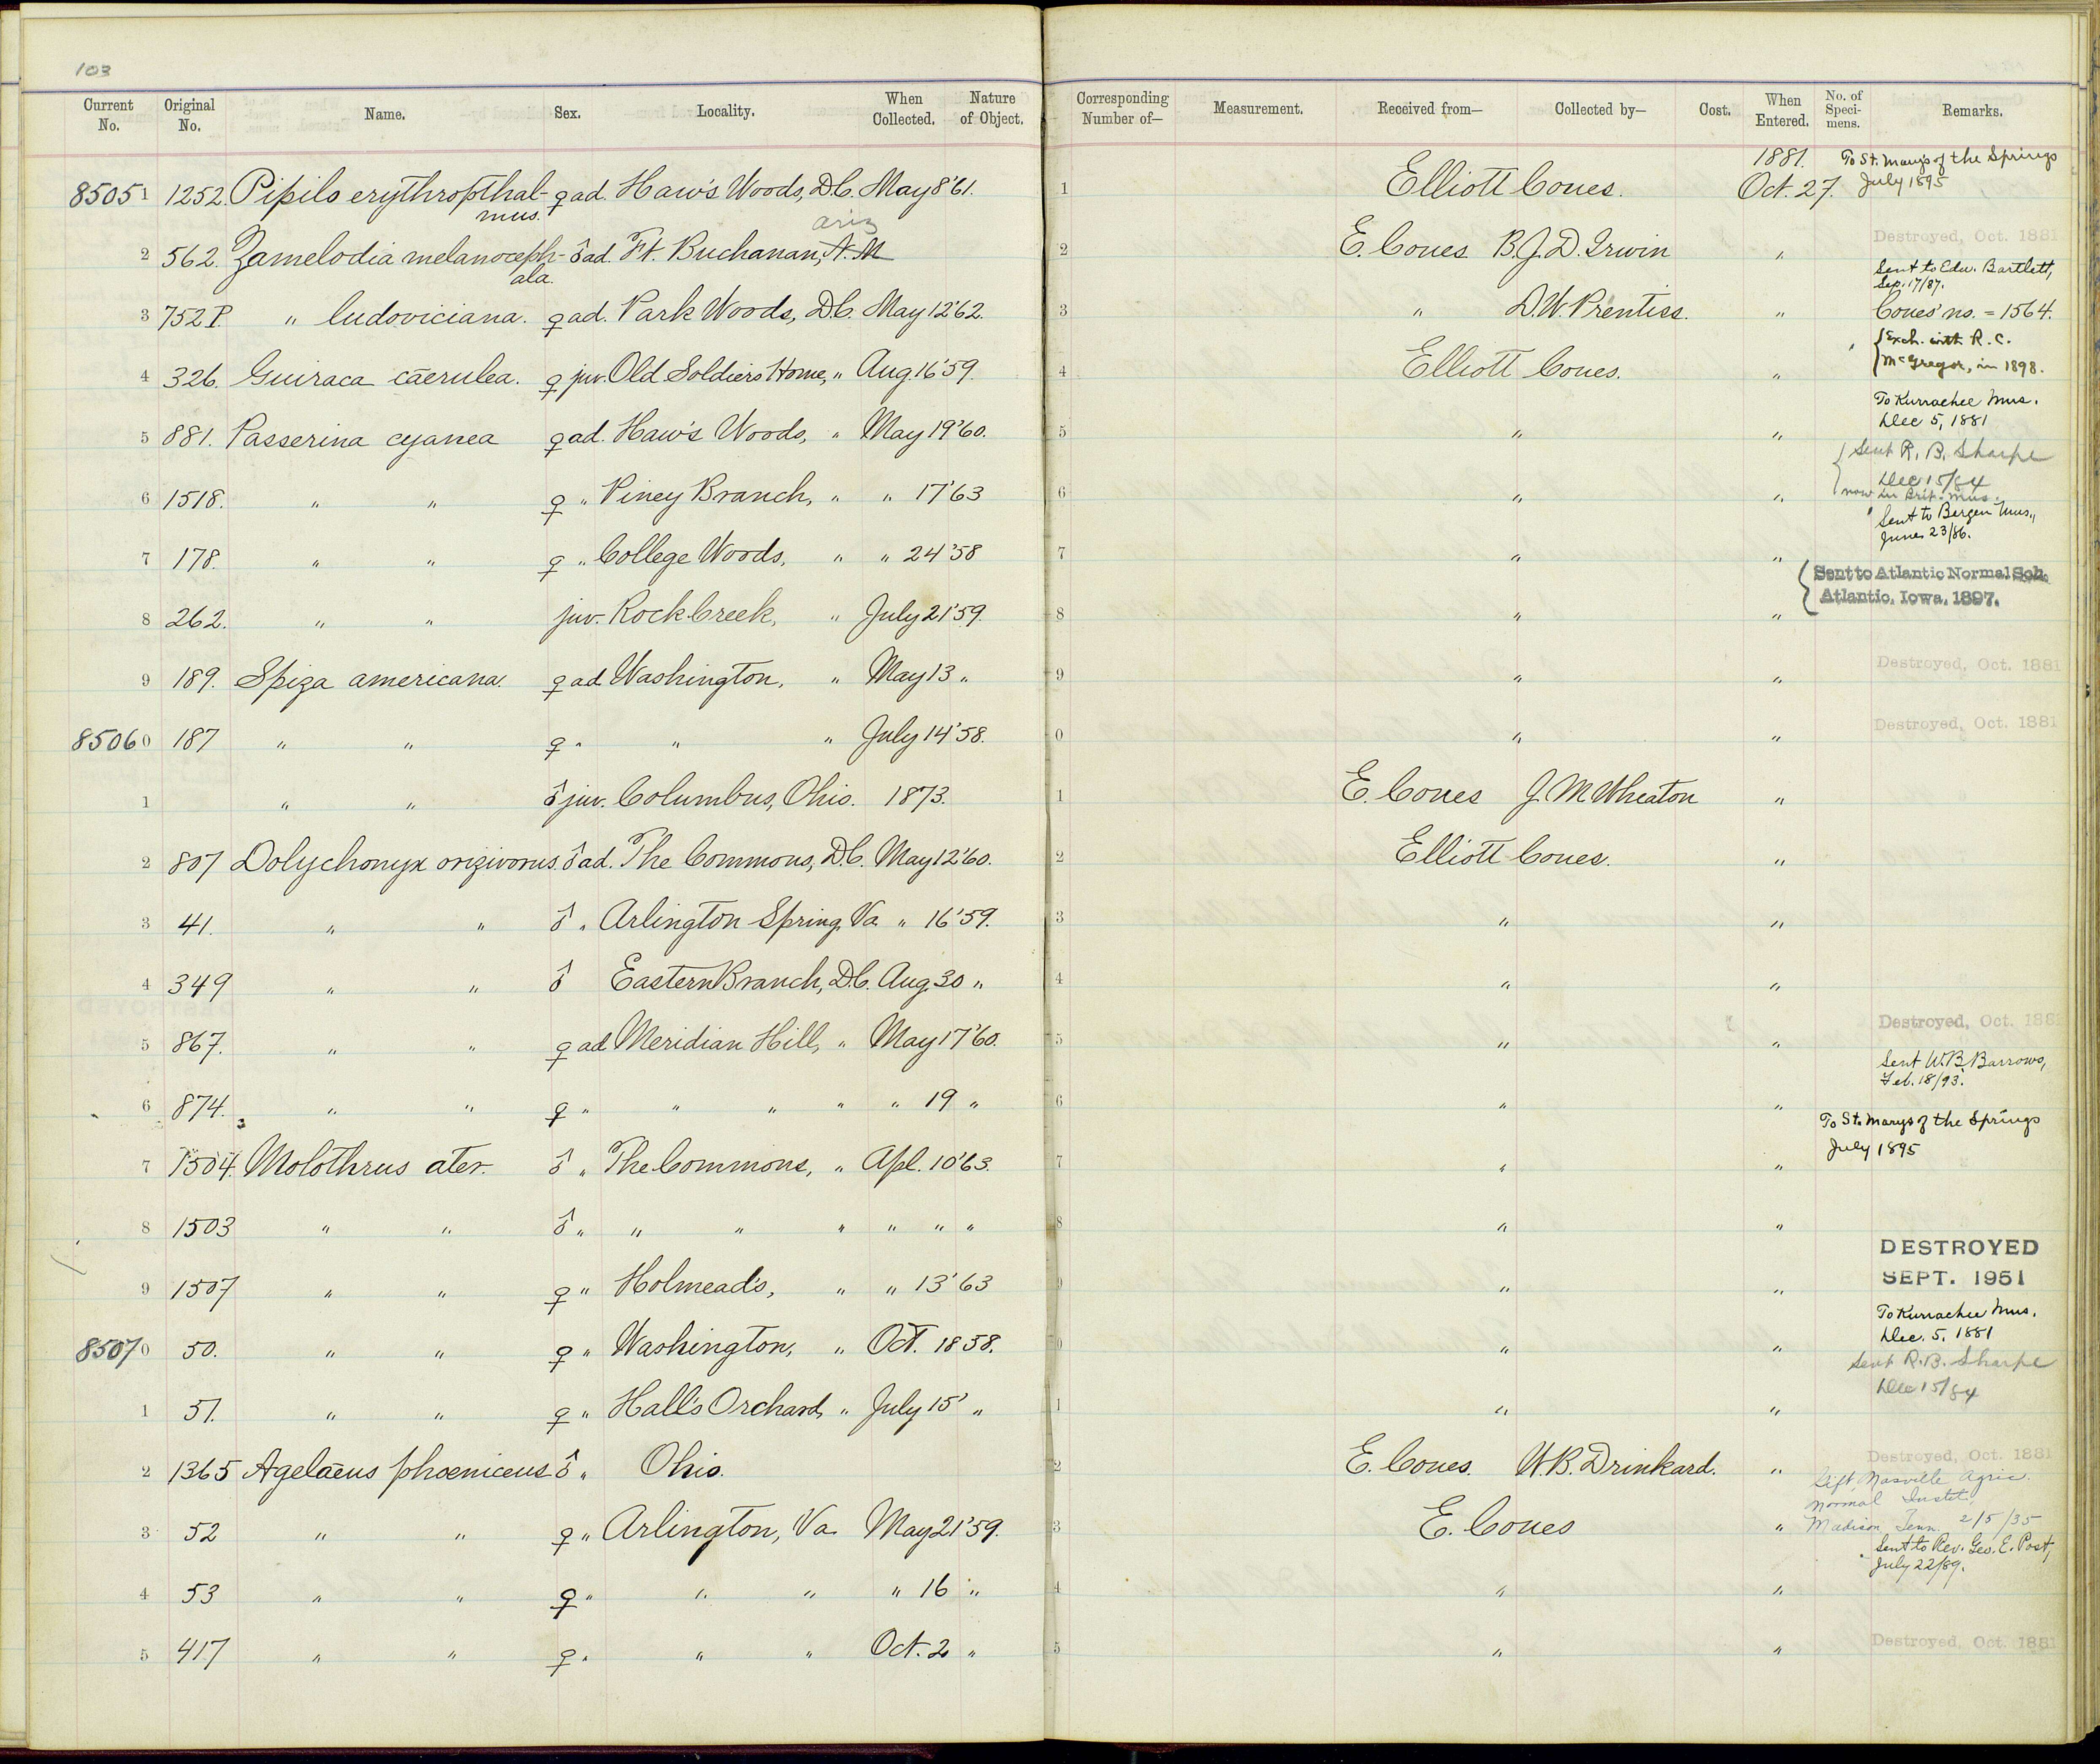 103
Current No. Original No. Name. Sex. Locality. When Collected. Nature of Object. Corresponding Number of— Measurement. Received from— Collected by— Cost. When Entered. No. of Speci-mens. Remarks.
85051 1252. Pipilo erythropthal-mus. ♀ ad. Haw's Woods, D.C. May 8'61. 1 Elliott Coues. 1881. Oct. 27. To St. Mary's of the Springs July 1895
2 562. Zamelodia melanoceph-ala. ♂ ad. Ft. Buchanan, N.M ariz 2 E. Coues B.J.D. Irwin " Destroyed, Oct. 1881
3 752P. " ludoviciana. ♀ ad. Park Woods, D.C. May 12'62. 3 " D.W. Prentiss. " Sent to Edw. Bartlett, Sep. 17/87. Coues' no. = 1564.
4 326. Guiraca cærulea. ♀ juv. Old Soldiers Home, " Aug. 16'59. 4 Elliott Coues. " { Exch. with R. C. McGregor, in 1898.
5 881. Passerina cyanea ♀ ad. Haw's Woods, " May 19'60. 5 " " To Kurrachee Mus. Dec 5, 1881
6 1518. " " ♀ " Piney Branch, " " 17'63 6 " " { Sent R. B. Sharpe Dec 15/84 now in Brit. Mus.
7 178. " " ♀ " College Woods, " " 24'58 7 " " Sent to Bergen Mus., June 23/86.
8 262. " " juv. Rock Creek, " July 21'59. 8 " " { Sent to Atlantic Normal Sch. Atlantic, Iowa, 1897.
9 189. Spiza americana. ♀ ad Washington, " May 13 " 9 " " Destroyed, Oct. 1881
85060 187 " " ♀ " " " July 14'58. 0 " " Destroyed, Oct. 1881
1 " " ♂ juv. Columbus, Ohio. 1873. 1 E. Coues J.M Wheaton "
2 807 Dolychonyx orizivorus. ♂ ad. The Commons, D.C. May 12'60. 2 Elliott Coues. "
3 41. " " ♂ " Arlington Spring, Va " 16'59. 3 " "
4 349 " " ♂ Eastern Branch, D.C. Aug. 30 " 4 " "
5 867. " " ♀ ad Meridian Hill, " May 17'60. 5 " " Destroyed, Oct. 1881
6 874. " " ♀ " " " " " 19 " 6 " " Sent W.B. Barrows, Feb. 18/93.
7 1504. Molothrus ater. ♂ " The Commons, " Apl. 10'63. 7 " " To St. Marys of the Springs July 1895
8 1503 " " ♂ " " " " " " " 8 " "
9 1507 " " ♀ " Holmead's, " " 13'63 9 " " DESTROYED SEPT. 1951
85070 50. " " ♀ " Washington, " Oct. 18 58. 0 " " To Kurrachee Mus. Dec. 5, 1881
1 51. " " ♀ " Hall's Orchard, " July 15' " 1 " " Sent R.B. Sharpe Dec 15/84
2 1365 Agelæus phoeniceus ♂ " Ohio. 2 E. Coues. W.B. Drinkard. " Destroyed, Oct. 1881
3 52 " " ♀ " Arlington, Va. May 21'59. 3 E. Coues " Gift, Nasville Agric. Normal Instit. Madison, Tenn. 2/5/35
4 53 " " ♀ " " " " 16 " 4 " " Sent to Rev. Geo. E. Post, July 22/89.
5 417 " " ♀ " " " Oct. 2 " 5 " " Destroyed, Oct. 1881